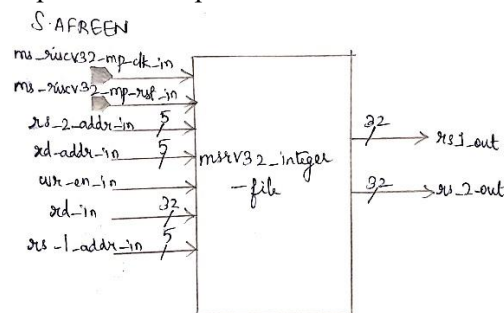 S.AFREEN
ms_riscv32-mp-clk_in
ms_riscv32-mp-rst_in
rs_2_addr_in 5
rd-addr_in 5
wr_en_in
rd_in 32
rs_1_addr_in 5
msrv32_integer
-file
32 rs1_out
32 rs_2_out